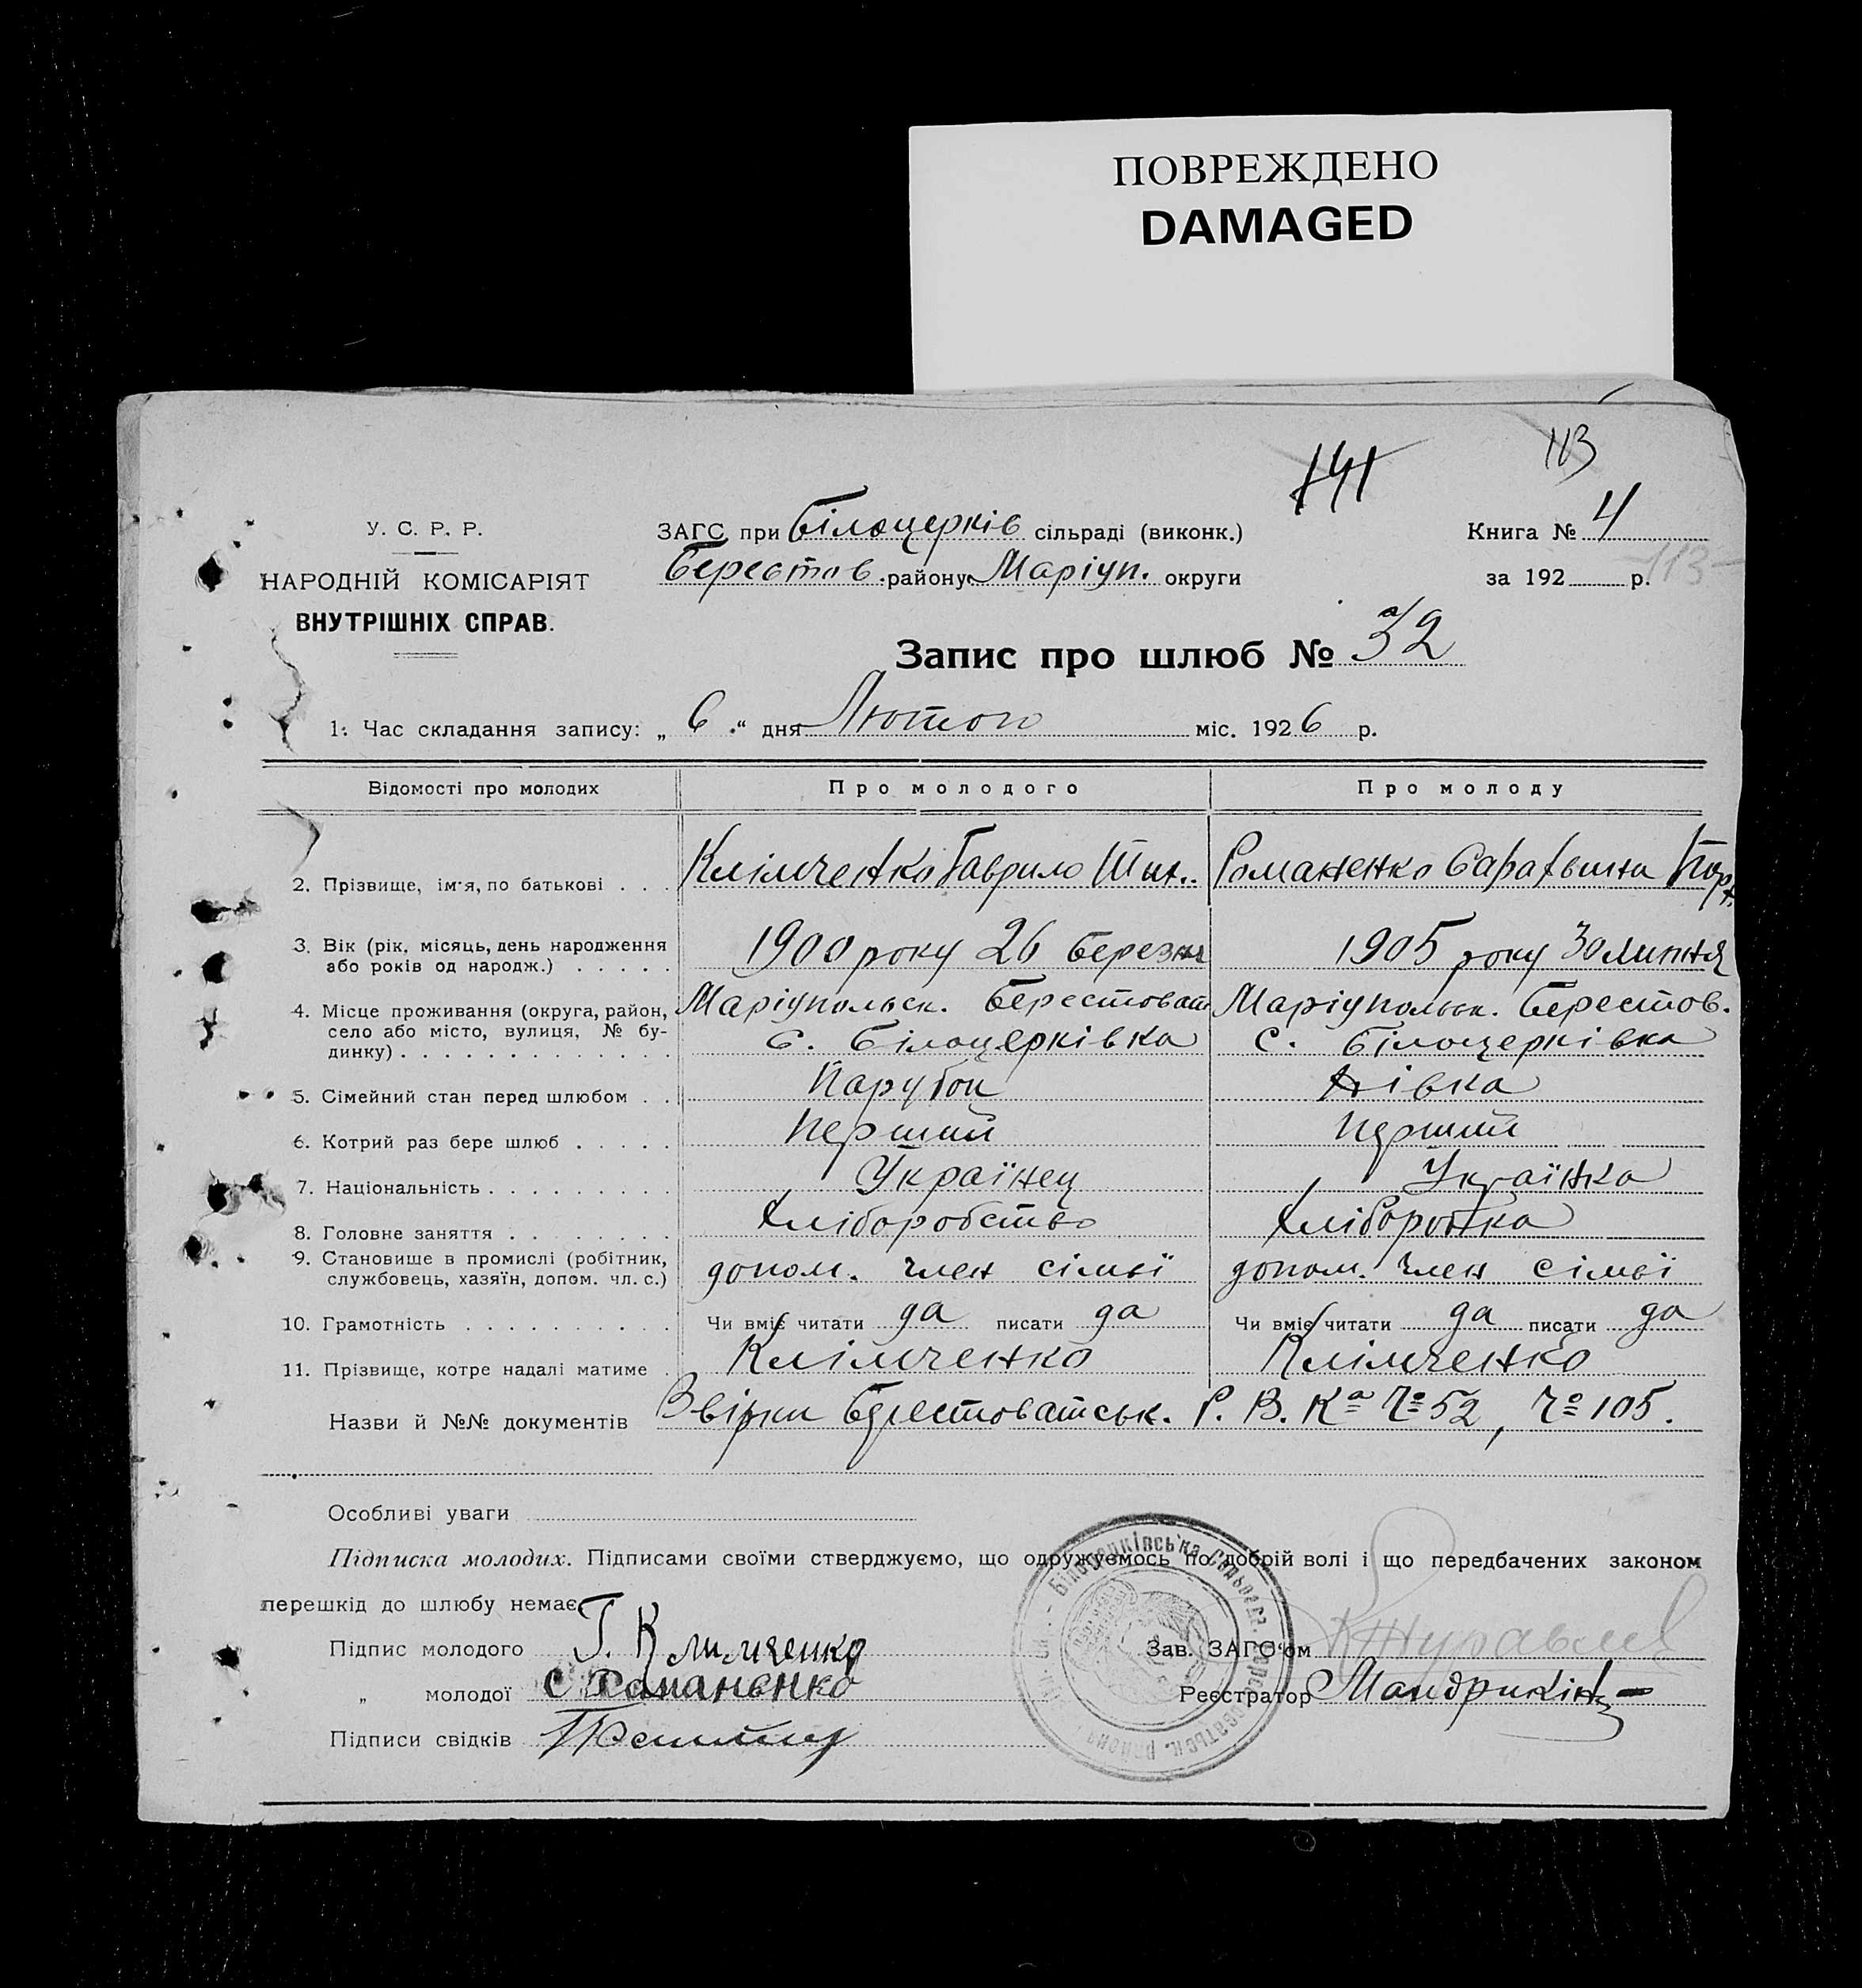 ПОВРЕЖДЕНО
DAMAGED
141
113
У. С. Р. Р.
НАРОДНІЙ КОМІСАРІЯТ
ВНУТРІШНІХ СПРАВ.
ЗАГС при Білоцерків сільраді (виконк.)
Берестов. району Маріуп. округи
Книга № 4
за 192 р. -113-
Запис про шлюб № 32
1. Час складання запису: „ 6 “ дня Лютого міс. 1926 р.
Відомості про молодих Про молодого Про молоду
2. Прізвище, ім'я, по батькові . . . Клімченко Гаврило Тим. Романенко Сарафьина
3. Вік (рік, місяць, день народження 1900 року 26 березня 1905 року 30 Липня
або років од народж.) . . . . .
4. Місце проживання (округа, район, Маріупольск. Берестоват Маріупольск. Берестов.
село або місто, вулиця, № бу- с. Білоцерківка с. Білоцерківка
динку) . . . . . . . . . . . . .
5. Сімейний стан перед шлюбом . . Парубок Дівка
6. Котрий раз бере шлюб . . . . . Перший Перший
7. Національність . . . . . . . . . Українец Українка
8. Головне заняття . . . . . . . . Хліборобство Хліборобка
9. Становище в промислі (робітник, допом. член сімьї допом. член сімьї
службовець, хазяїн, допом. чл. с.)
10. Грамотність . . . . . . . . . . Чи вміє читати да писати да Чи вміє читати да писати да
11. Прізвище, котре надалі матиме . Клімченко Клімченко
Назви й №№ документів Звірки Берестоватськ. Р. В. Ка № 52, № 105.
Особливі уваги
Підписка молодих. Підписами своїми стверджуємо, що одружуємось по добрій волі і що передбачених законом
перешкід до шлюбу немає.
Підпис молодого Г. Климченко
Зав. ЗАГС'ом Журавлев
„ молодої С Раманенко
Реєстратор
Підписи свідків